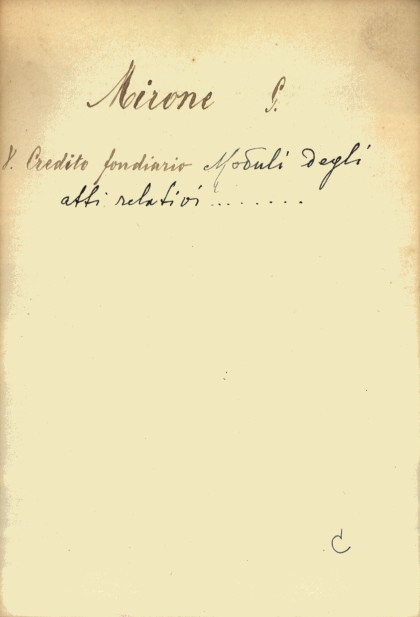 Mirone G.
V. Credito fondiario Moduli degli
atti relativi ........
C